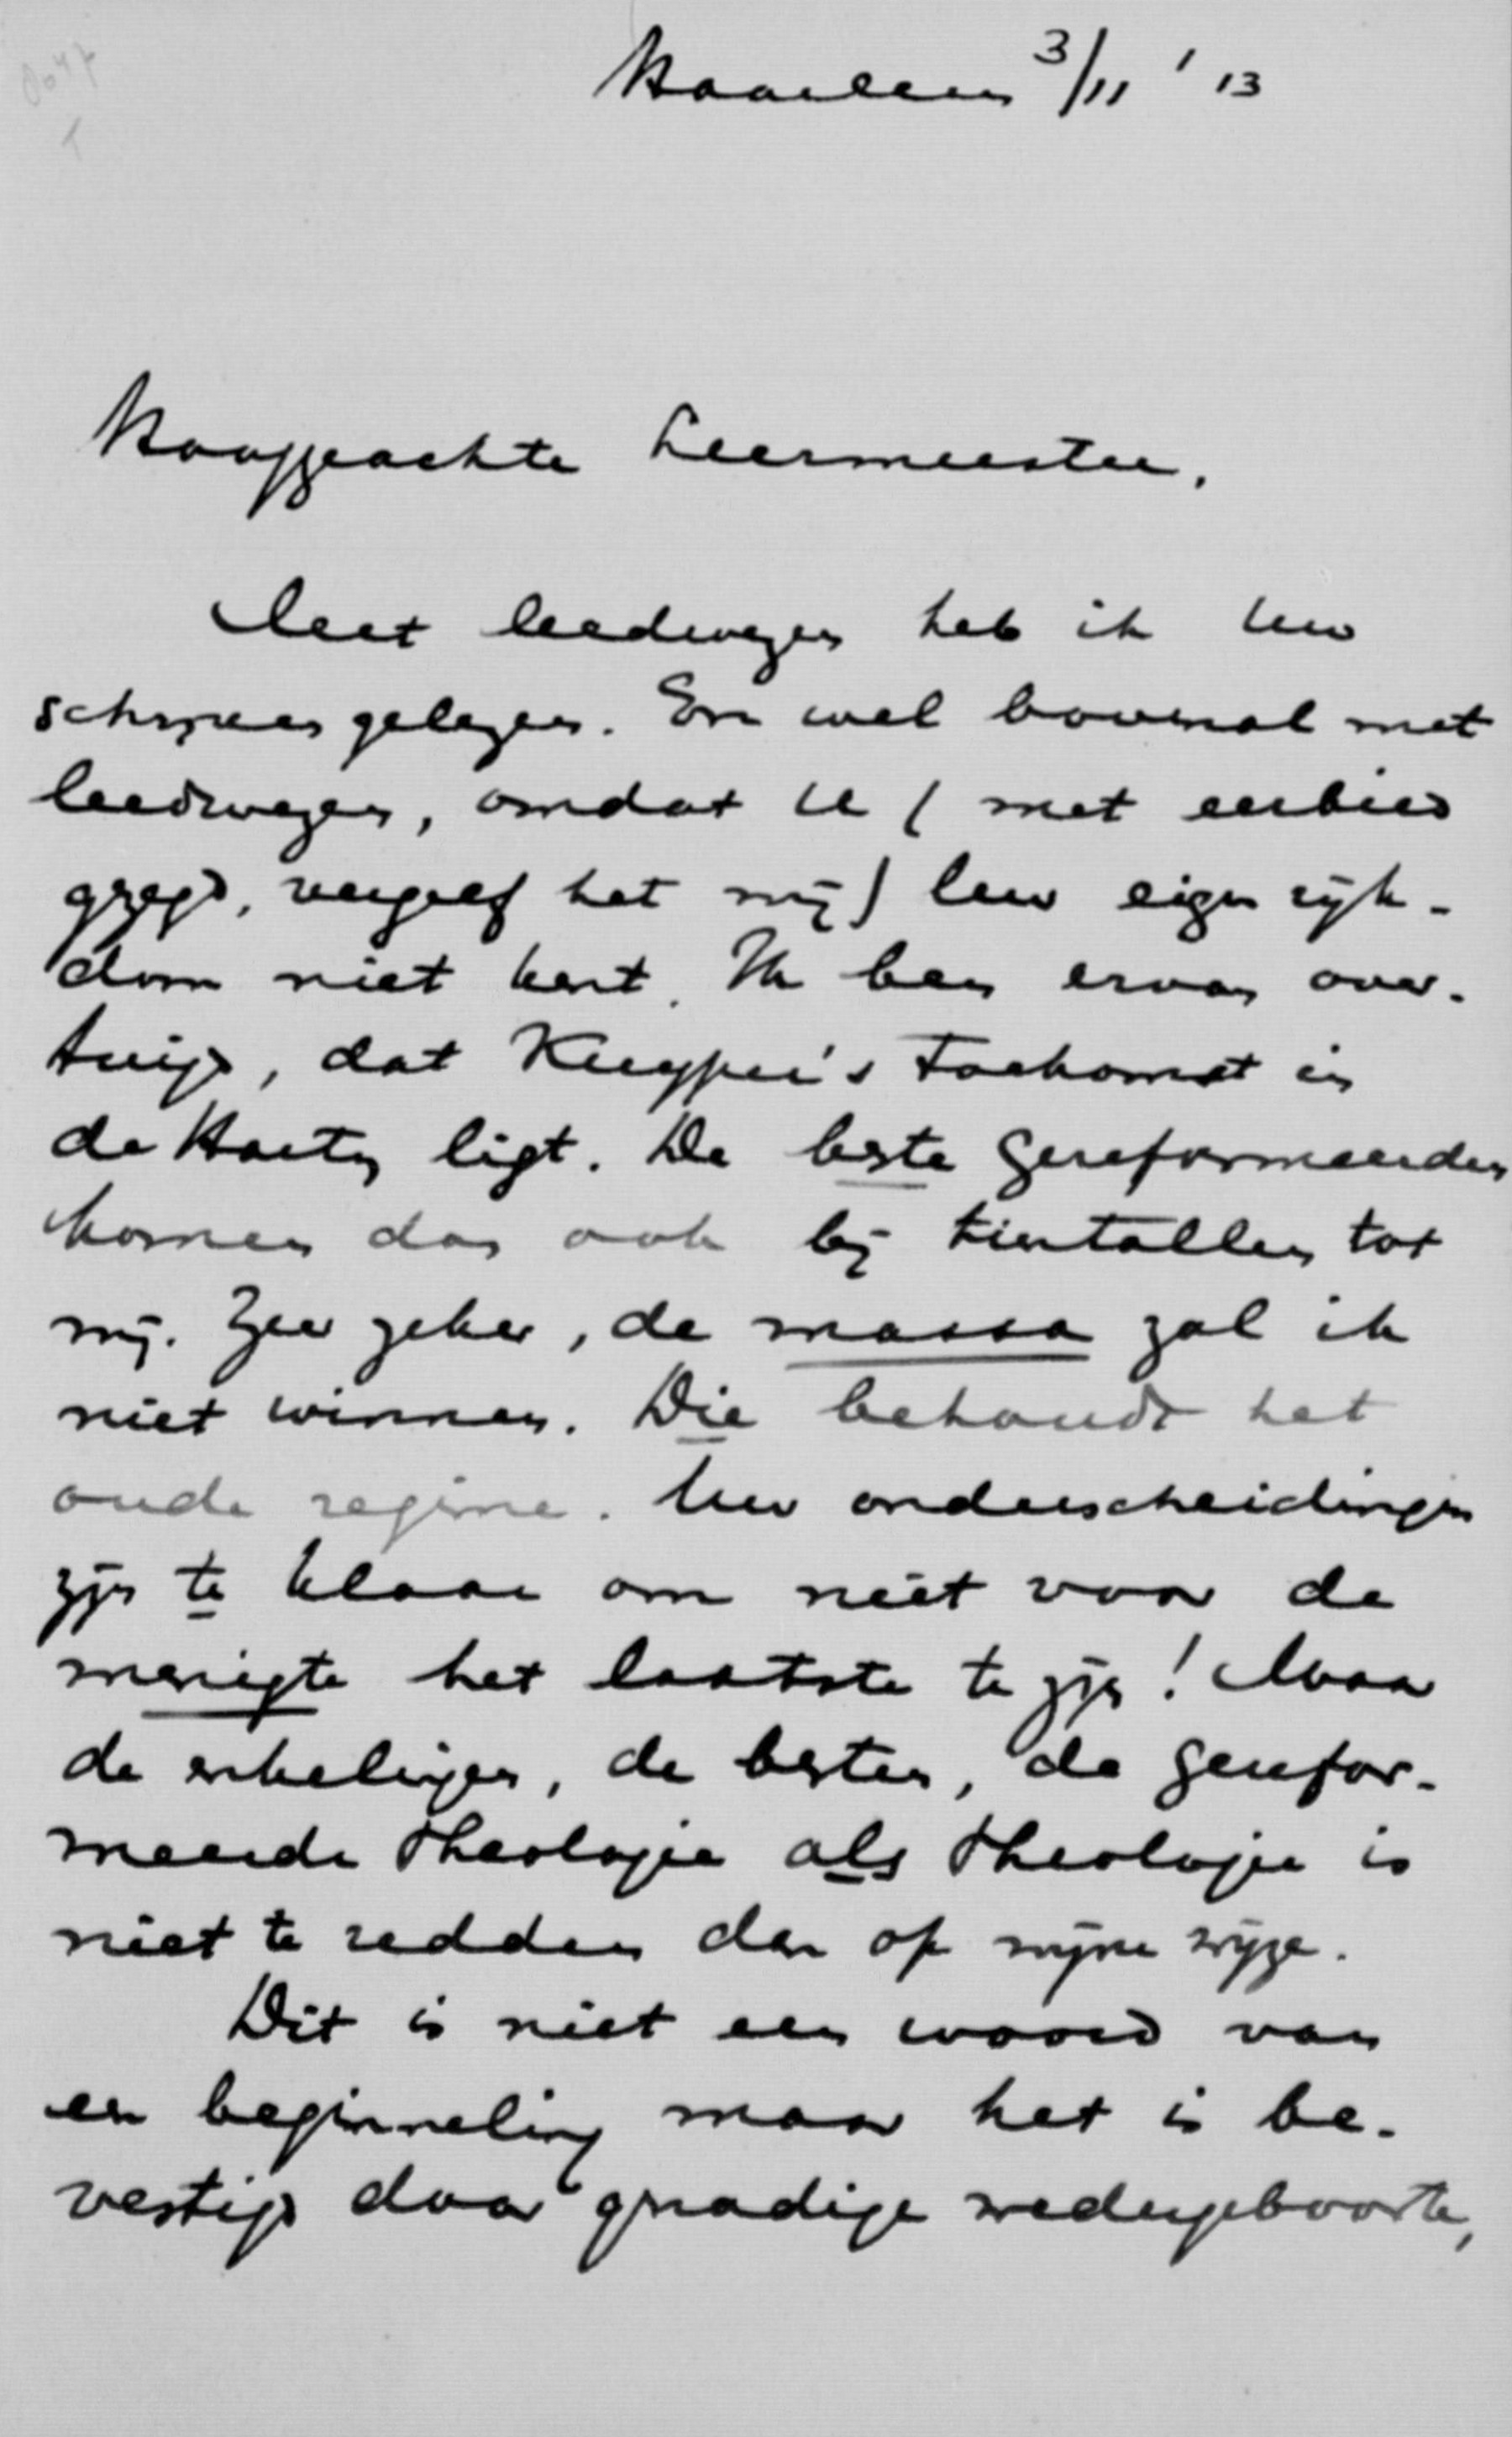 Haarlem 3/11 '13
Hooggeachte Leermeester,
Met leedwezen heb ik Uw
schrijven gelezen. En wel bovenal met
leedwezen, omdat U (met eerbied
gezegd, vergeef het mij) Uw eigen rijk-
dom niet kent. Ik ben ervan over-
tuigd, dat Kuyper's toekomst in
de Hartog ligt. De beste Gereformeerden
komen dan ook bij tientallen tot
mij. Zeer zeker, de massa zal ik
niet winnen. Die behoudt het
oude regime. Uw onderscheidingen
zijn te klaar om niet voor de
menigte het laatste te zijn! Maar
de enkelingen, de besten, de Gerefor-
meerde Theologie als Theologie is
niet te redden dan op mijne wijze.
Dit is niet een woord van
een beginneling maar het is be-
vestigd door genadige wedergeboorte,